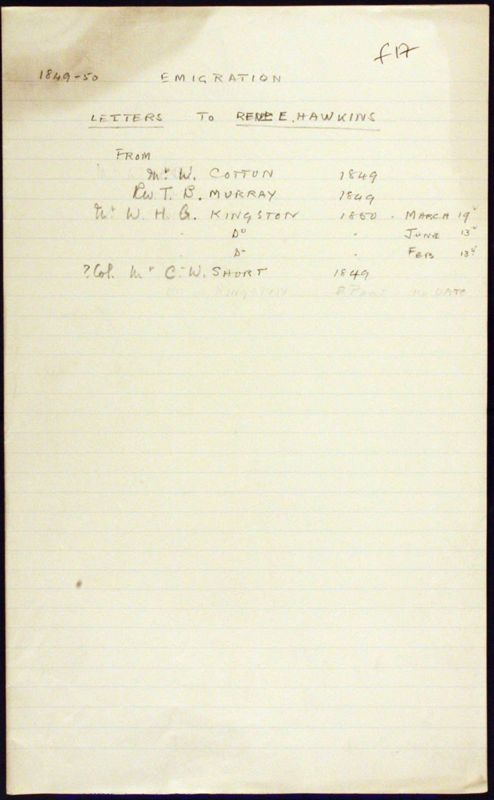 f17
1849-50 EMIGRATION
LETTERS TO E. HAWKINS
FROM
Mr W. COTTON 1849
Rev. T. B. MURRAY 1849
Mr W. H. G. KINGSTON 1850 . MARCH 19th
" Do " JUNE 13th
" Do " FEB 13th
? Col. Mr C. W. SHORT 1849
KINGSTON NO DATE